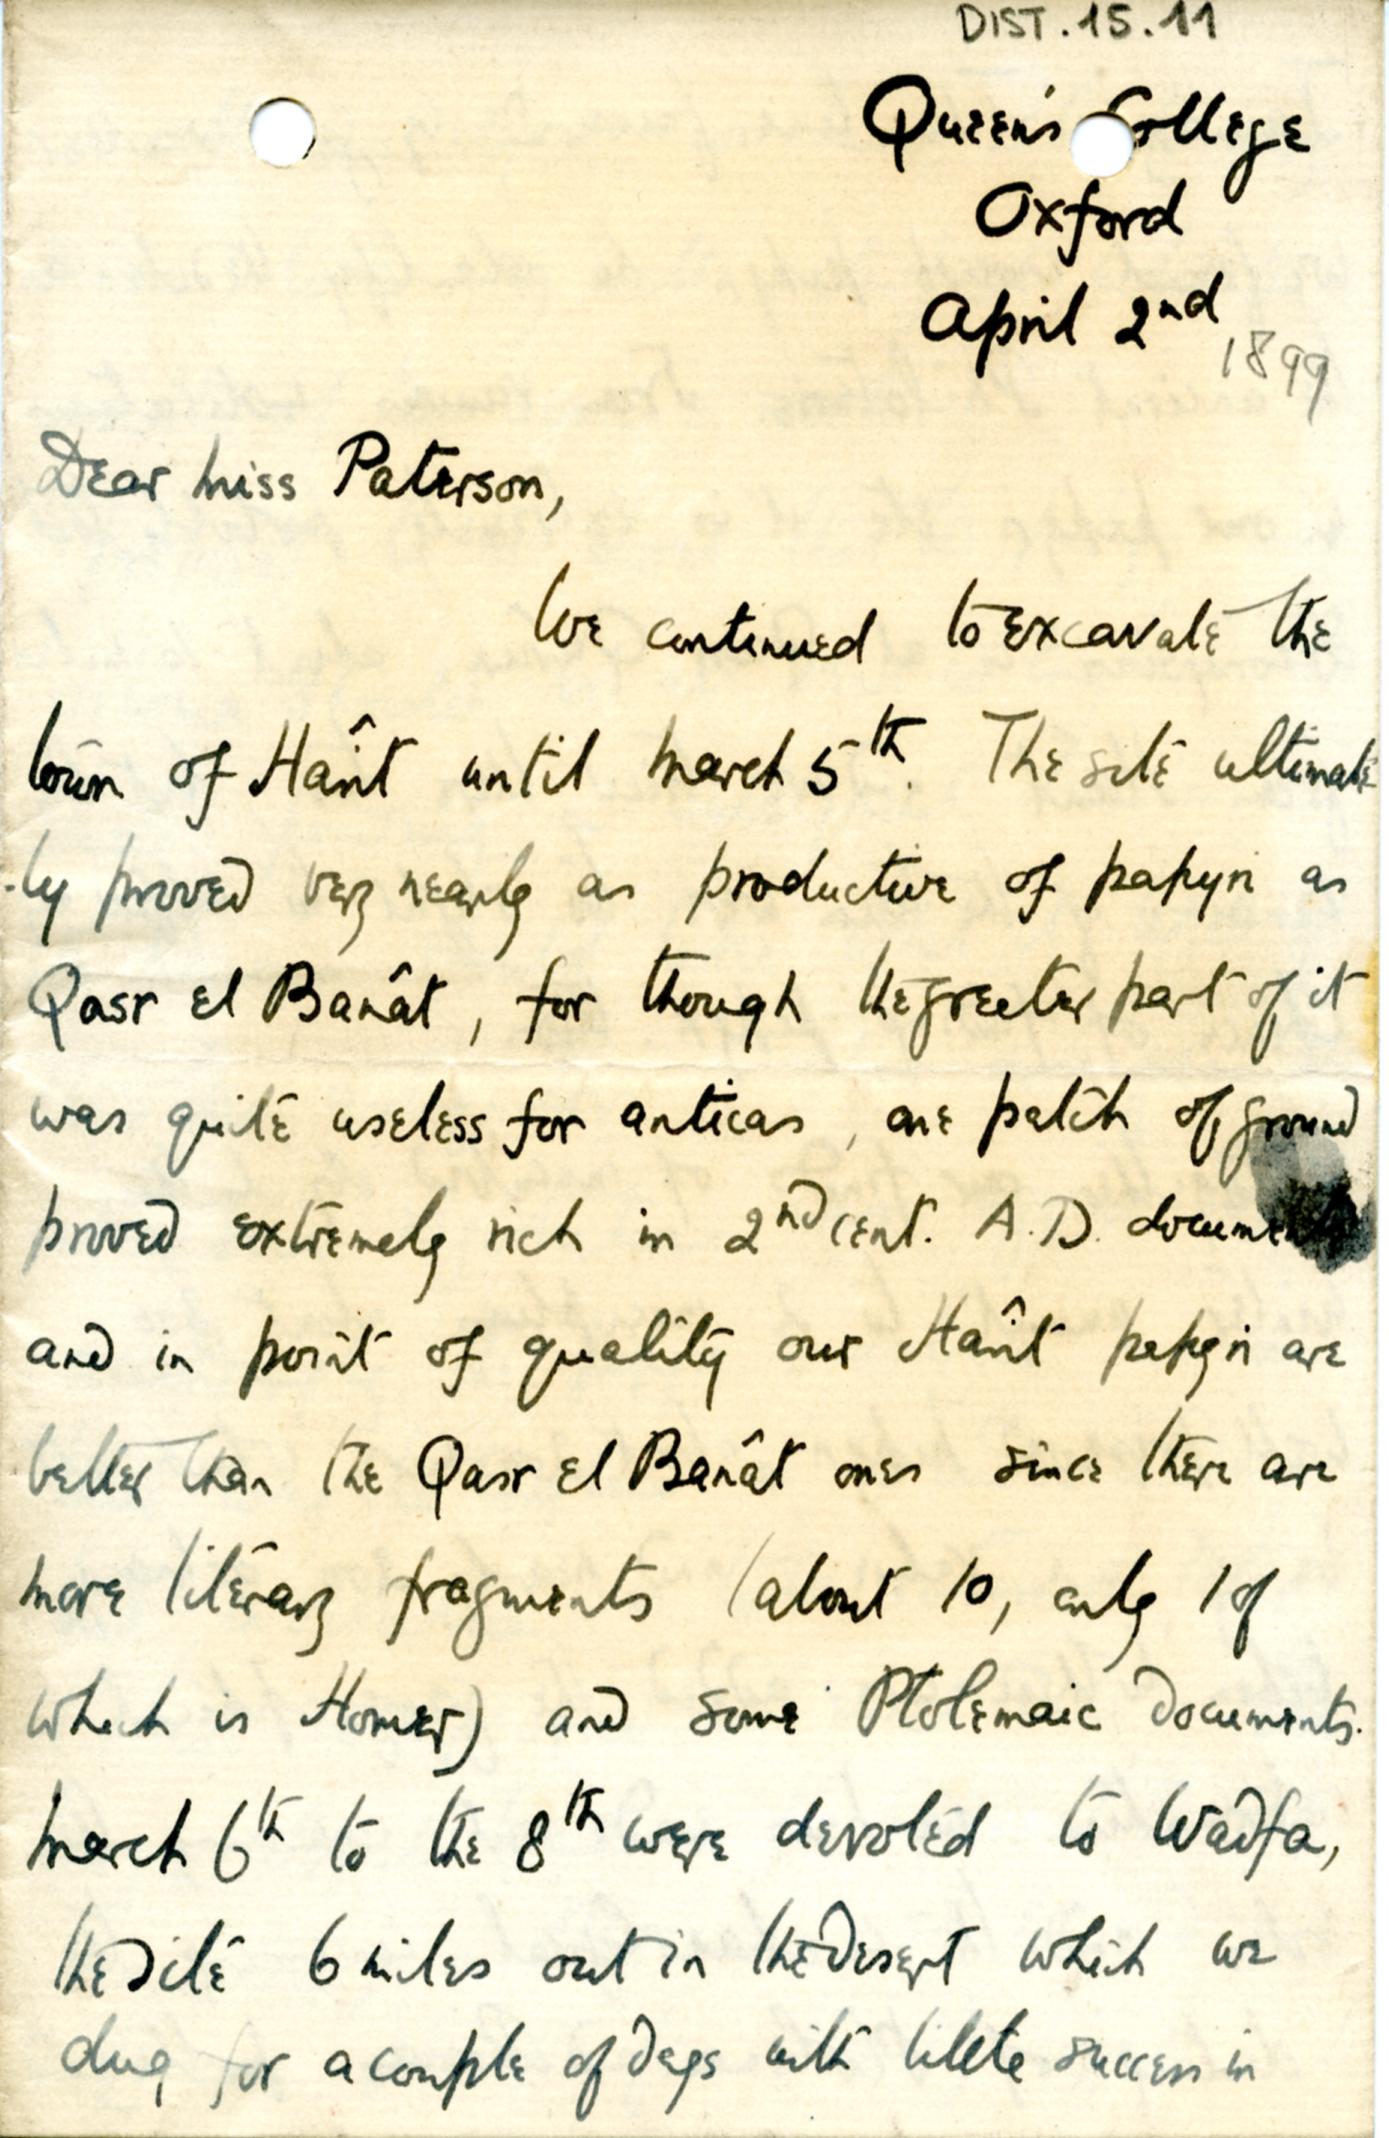 DIST.15.11
Queen's College
Oxford
April 2nd
1899
Dear Miss Paterson,
We continued to excavate the
town of Harît until March 5th. The site ultimate
-ly proved very nearly as productive of papyri as
Qasr el Banât, for though the greater part of it
was quite useless for anticas, one patch of ground
proved extremely rich in 2nd cent. A.D. documents
and in point of quality our Harît papyri are
better than the Qasr el Banât ones since there are
more literary fragments (about 10, only 1 of
which is Homer) and some Ptolemaic documents.
March 6th to the 8th were devoted to Wadfa,
the site 6 miles out in the desert which we
dug for a couple of days with little success in